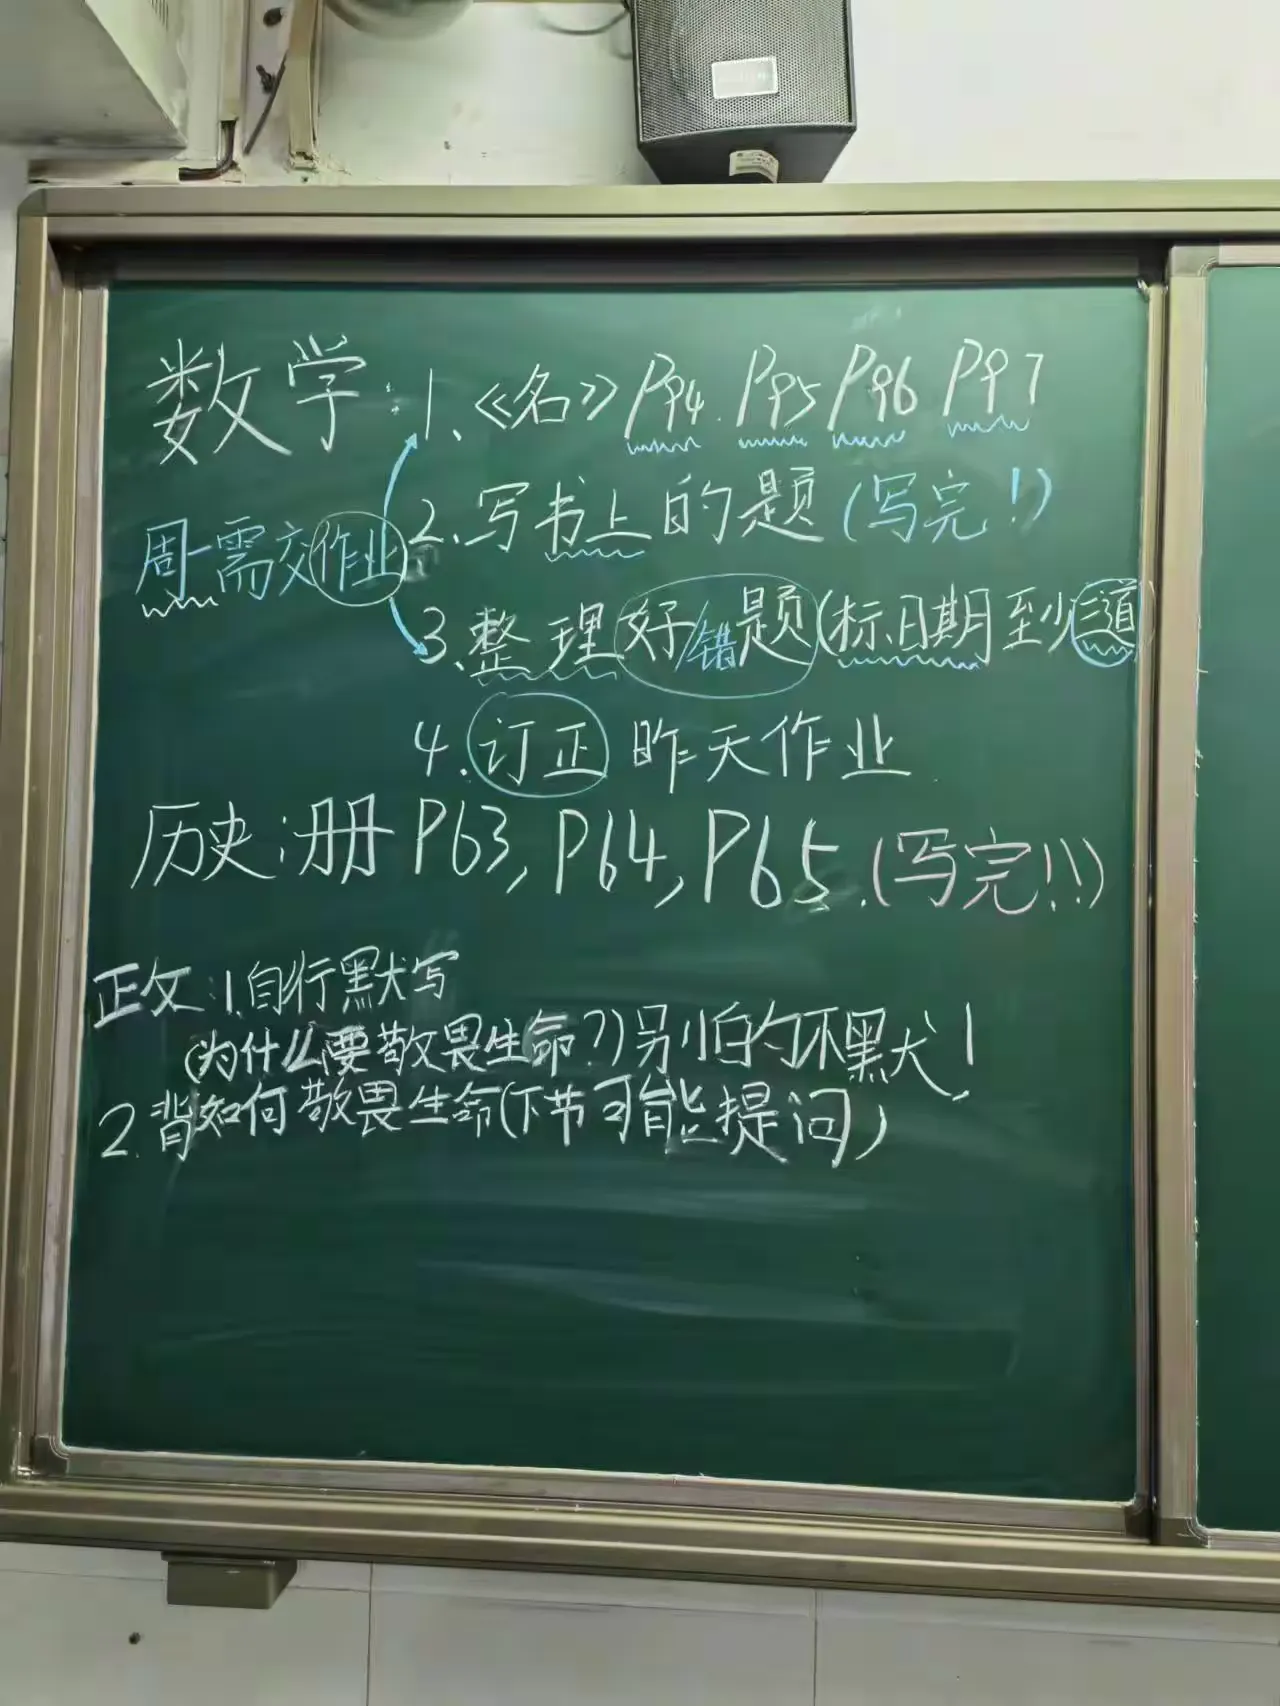 数学：1、《名》P94. P95 P96 P97
2.写书上的题(写完！)
周一需交作业
3.整理好/错题(标日期至少三道)
4.订正昨天作业
历史：册P63,P64,P65.(写完!!)
正文：1.自行默写
(为什么要敬畏生命?)别怕的不默！
2.背如何敬畏生命(下节可能提问)